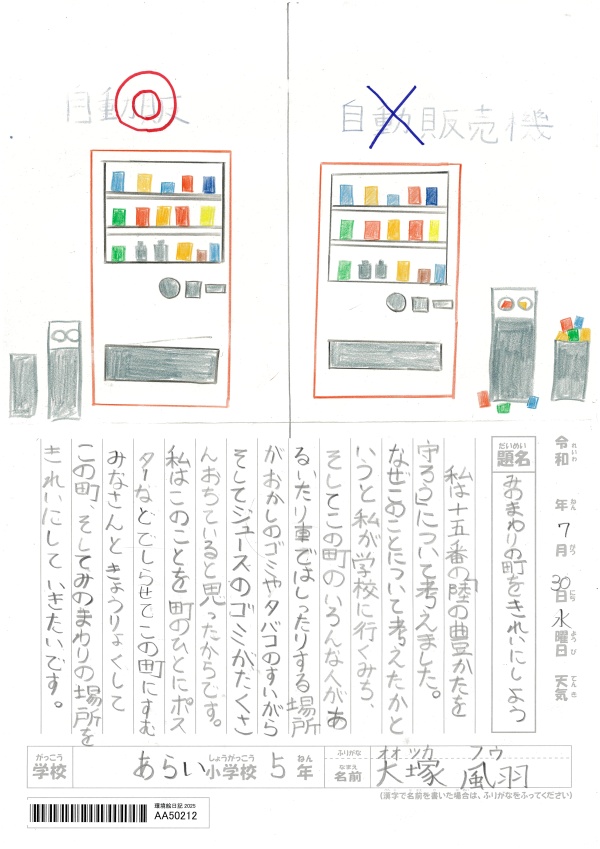 自動販
自動販売機
令和 年 7月 30日 水曜日 天気
れいわ ねん がつ にち ようび てんき
だいめい
題名 みのまわりの町をきれいにしよう
私は十五番の「陸の豊かたを
守ろう」について考えました。
なぜこのことについて考えたかと
いうと私が学校に行くみち、
そしてこの町のいろんな人があ
るいたり車ではしったりする場所
がおかしのゴミやタバコのすいがら
そしてジュースのゴミがたくさ
んおちていると思ったからです。
私はこのことを町のひとにポス
ターなどでしらせてこの町にすむ
みなさんときょうりょくして
この町、そしてみのまわりの場所を
きれいにしていきたいです。
がっこう しょうがっこう ねん
学校 あらい小学校 5年
ふりがな オオツカ フウ
なまえ
名前 大塚 風羽
(漢字で名前を書いた場合は、ふりがなをふってください)
環境絵日記 2025
AA50212